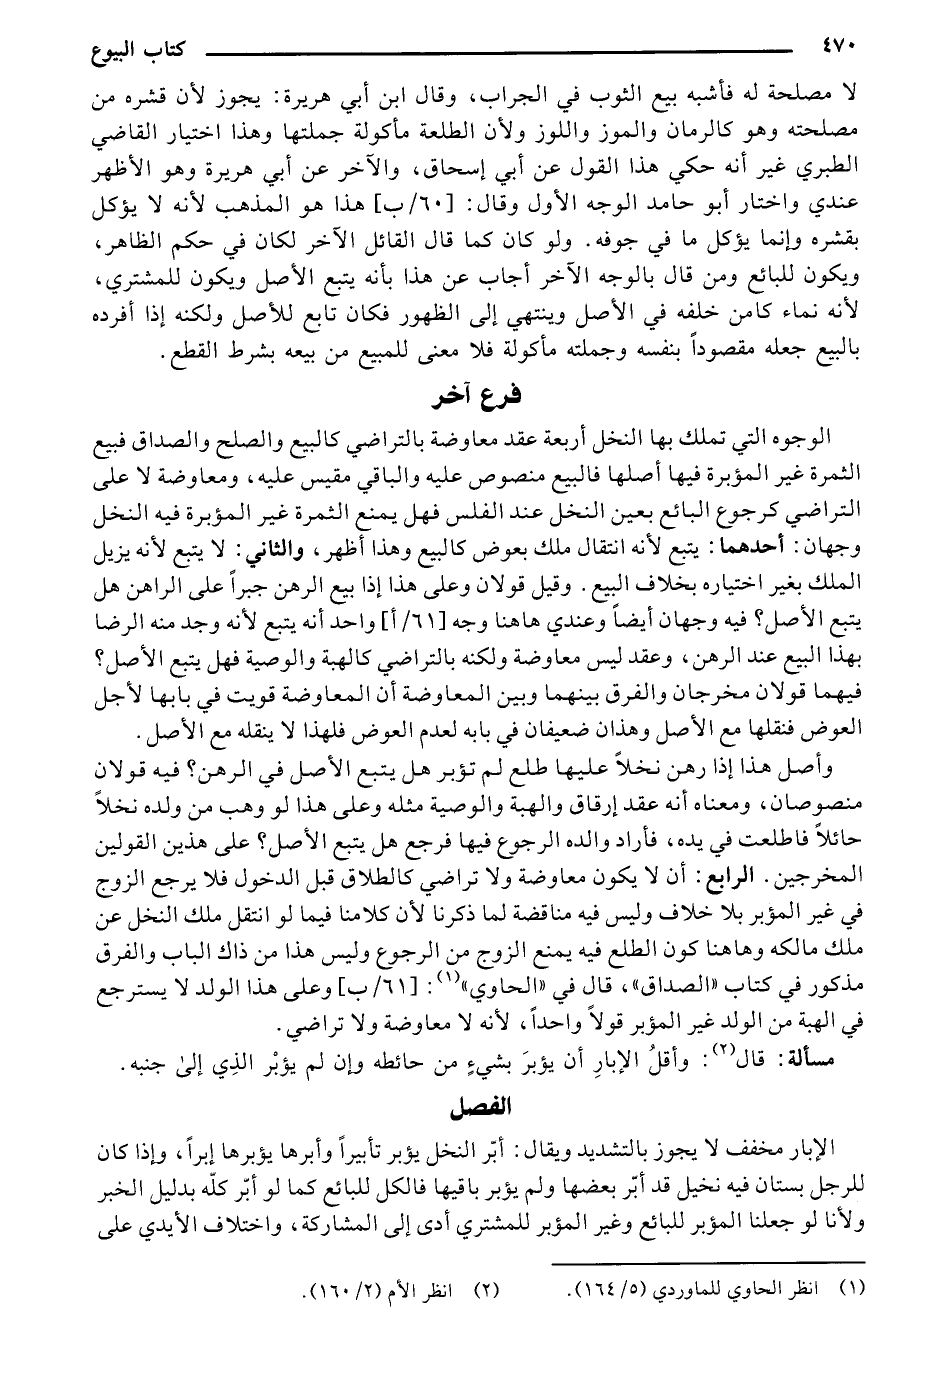 ٤٧٠ كتاب البيوع
لا مصلحة له فأشبه بيع الثوب في الجراب، وقال ابن أبي هريرة: يجوز لأن قشره من
مصلحته وهو كالرمان والموز واللوز ولأن الطلعة مأكولة جملتها وهذا اختيار القاضي
الطبري غير أنه حكي هذا القول عن أبي إسحاق، والآخر عن أبي هريرة وهو الأظهر
عندي واختار أبو حامد الوجه الأول وقال: [٦٠/ ب] هذا هو المذهب لأنه لا يؤكل
بقشره وإنما يؤكل ما في جوفه. ولو كان كما قال القائل الآخر لكان في حكم الظاهر،
ويكون للبائع ومن قال بالوجه الآخر أجاب عن هذا بأنه يتبع الأصل ويكون للمشتري،
لأنه نماء كامن خلفه في الأصل وينتهي إلى الظهور فكان تابع للأصل ولكنه إذا أفرده
بالبيع جعله مقصوداً بنفسه وجملته مأكولة فلا معنى للمبيع من بيعه بشرط القطع.
فرع آخر
الوجوه التي تملك بها النخل أربعة عقد معاوضة بالتراضي كالبيع والصلح والصداق فبيع
الثمرة غير المؤبرة فيها أصلها فالبيع منصوص عليه والباقي مقيس عليه، ومعاوضة لا على
التراضي كرجوع البائع بعين النخل عند الفلس فهل يمنع الثمرة غير المؤبرة فيه النخل
وجهان: أحدهما: يتبع لأنه انتقال ملك بعوض كالبيع وهذا أظهر، والثاني: لا يتبع لأنه يزيل
الملك بغير اختياره بخلاف البيع. وقيل قولان وعلى هذا إذا بيع الرهن جبراً على الراهن هل
يتبع الأصل؟ فيه وجهان أيضاً وعندي هاهنا وجه [٦١/ أ] واحد أنه يتبع لأنه وجد منه الرضا
بهذا البيع عند الرهن، وعقد ليس معاوضة ولكنه بالتراضي كالهبة والوصية فهل يتبع الأصل؟
فيهما قولان مخرجان والفرق بينهما وبين المعاوضة أن المعاوضة قويت في بابها لأجل
العوض فنقلها مع الأصل وهذان ضعيفان في بابه لعدم العوض فلهذا لا ينقله مع الأصل.
وأصل هذا إذا رهن نخلاً عليها طلع لم تؤبر هل يتبع الأصل في الرهن؟ فيه قولان
منصوصان، ومعناه أنه عقد إرقاق والهبة والوصية مثله وعلى هذا لو وهب من ولده نخلاً
حائلاً فاطلعت في يده، فأراد والده الرجوع فيها فرجع هل يتبع الأصل؟ على هذين القولين
المخرجين. الرابع: أن لا يكون معاوضة ولا تراضي كالطلاق قبل الدخول فلا يرجع الزوج
في غير المؤبر بلا خلاف وليس فيه مناقضة لما ذكرنا لأن كلامنا فيما لو انتقل ملك النخل عن
ملك مالكه وهاهنا كون الطلع فيه يمنع الزوج من الرجوع وليس هذا من ذاك الباب والفرق
مذكور في كتاب «الصداق»، قال في «الحاوي»(١): [٦١/ ب] وعلى هذا الولد لا يسترجع
في الهبة من الولد غير المؤبر قولاً واحداً، لأنه لا معاوضة ولا تراضي.
مسألة: قال(٢): وأقلُ الإبارِ أن يؤبرَ بشيءٍ من حائطه وإن لم يؤبْر الذِي إلىٰ جنبه.
الفصل
الإبار مخفف لا يجوز بالتشديد ويقال: أبّر النخل يؤبر تأبيراً وأبرها يؤبرها إبراً، وإذا كان
للرجل بستان فيه نخيل قد أبّر بعضها ولم يؤبر باقيها فالكل للبائع كما لو أبّر كلّه بدليل الخبر
ولأنا لو جعلنا المؤبر للبائع وغير المؤبر للمشتري أدى إلى المشاركة، واختلاف الأيدي على
(١) انظر الحاوي للماوردي (٥/ ١٦٤). (٢) انظر الأم (٢/ ١٦٠).